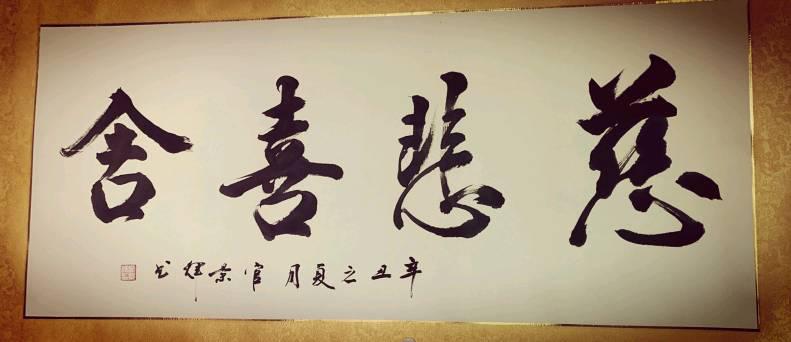 慈悲喜舍
辛丑之夏月官景煇书